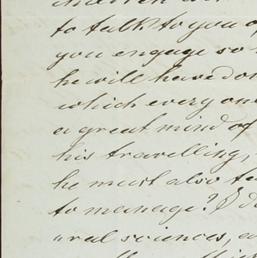 to talk to you o
you engage so
he will have do
which every on
a great mind of
his travelling,
he must also
to manage? I d
"ral sciences, a